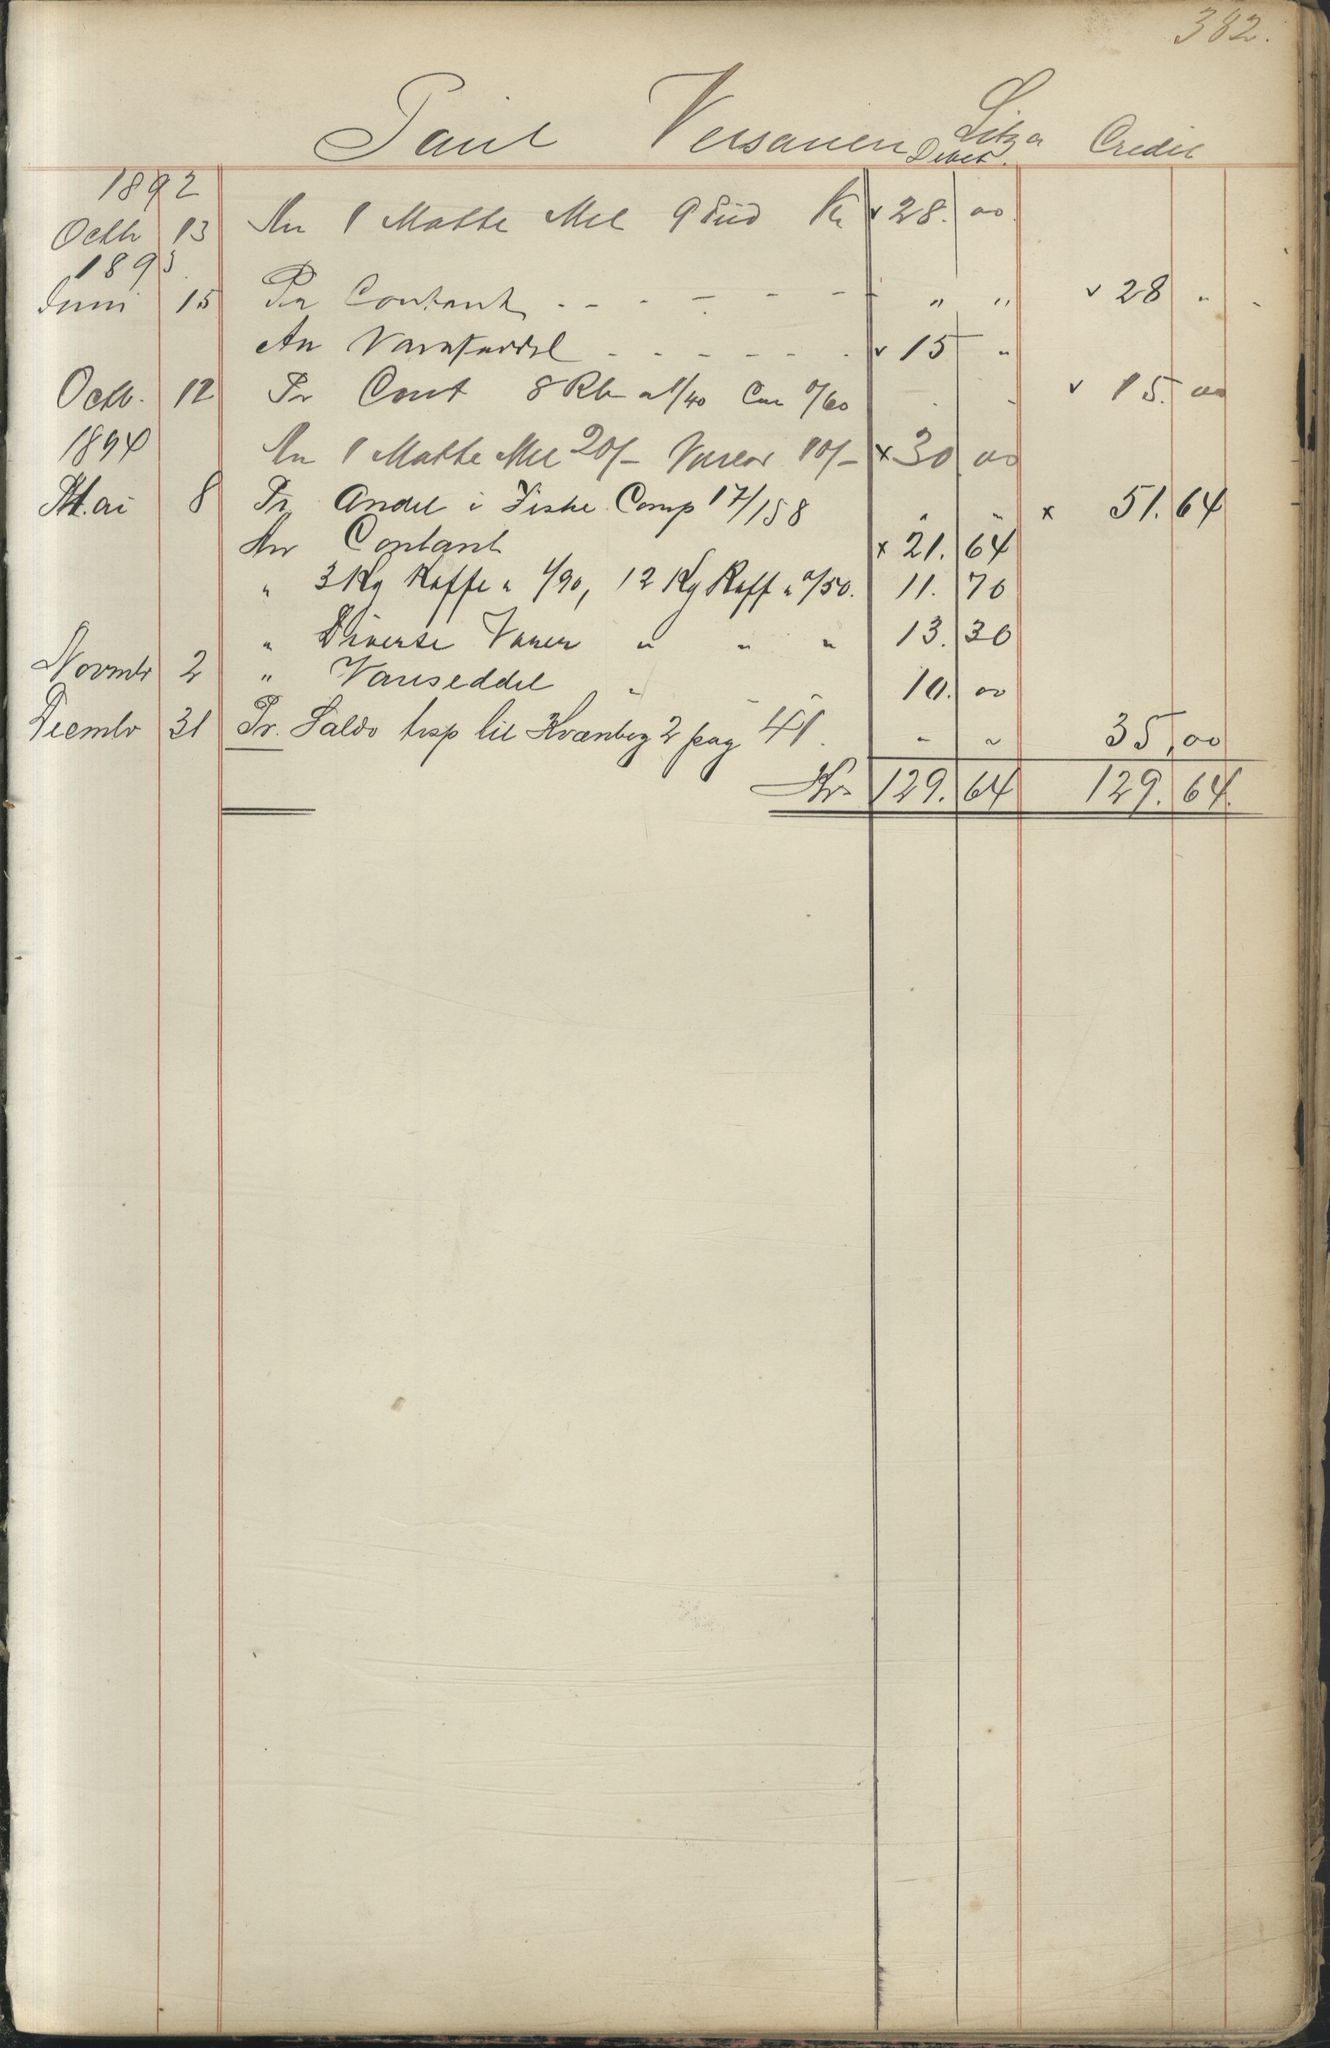 382.
Paul Versanen Litza
Debet. Credit
1892
Octb 13 An 1 Matte Mel 9 Pud Kr v 28. 00
1893
Juni 15 Pr Contant - - - - - - " " v 28 " -
An Vareseddel - - - - - - v 15 "
Octb. 12 Pr Cont 8 Rb a 1/40 0/60 v 15. 00
1894 An 1 Matte Mel 20/- Varer 10/- x 30 00
Mai 8 Pr Andel i Fiske Comp 17/158 " " x 51. 64
An Contant x 21. 64
" 3 Kg Kaffe a 1/90, 12 Kg Raff a 0/50. 11. 70
" Diverse Varer " " " 13. 30
Novmbr 2 " Vareseddel " " " 10. 00
Decmbr 31 Pr. Saldo trsp til Kvænbog 2 pag 41. " " 35, 00
Kr 129. 64 129. 64.